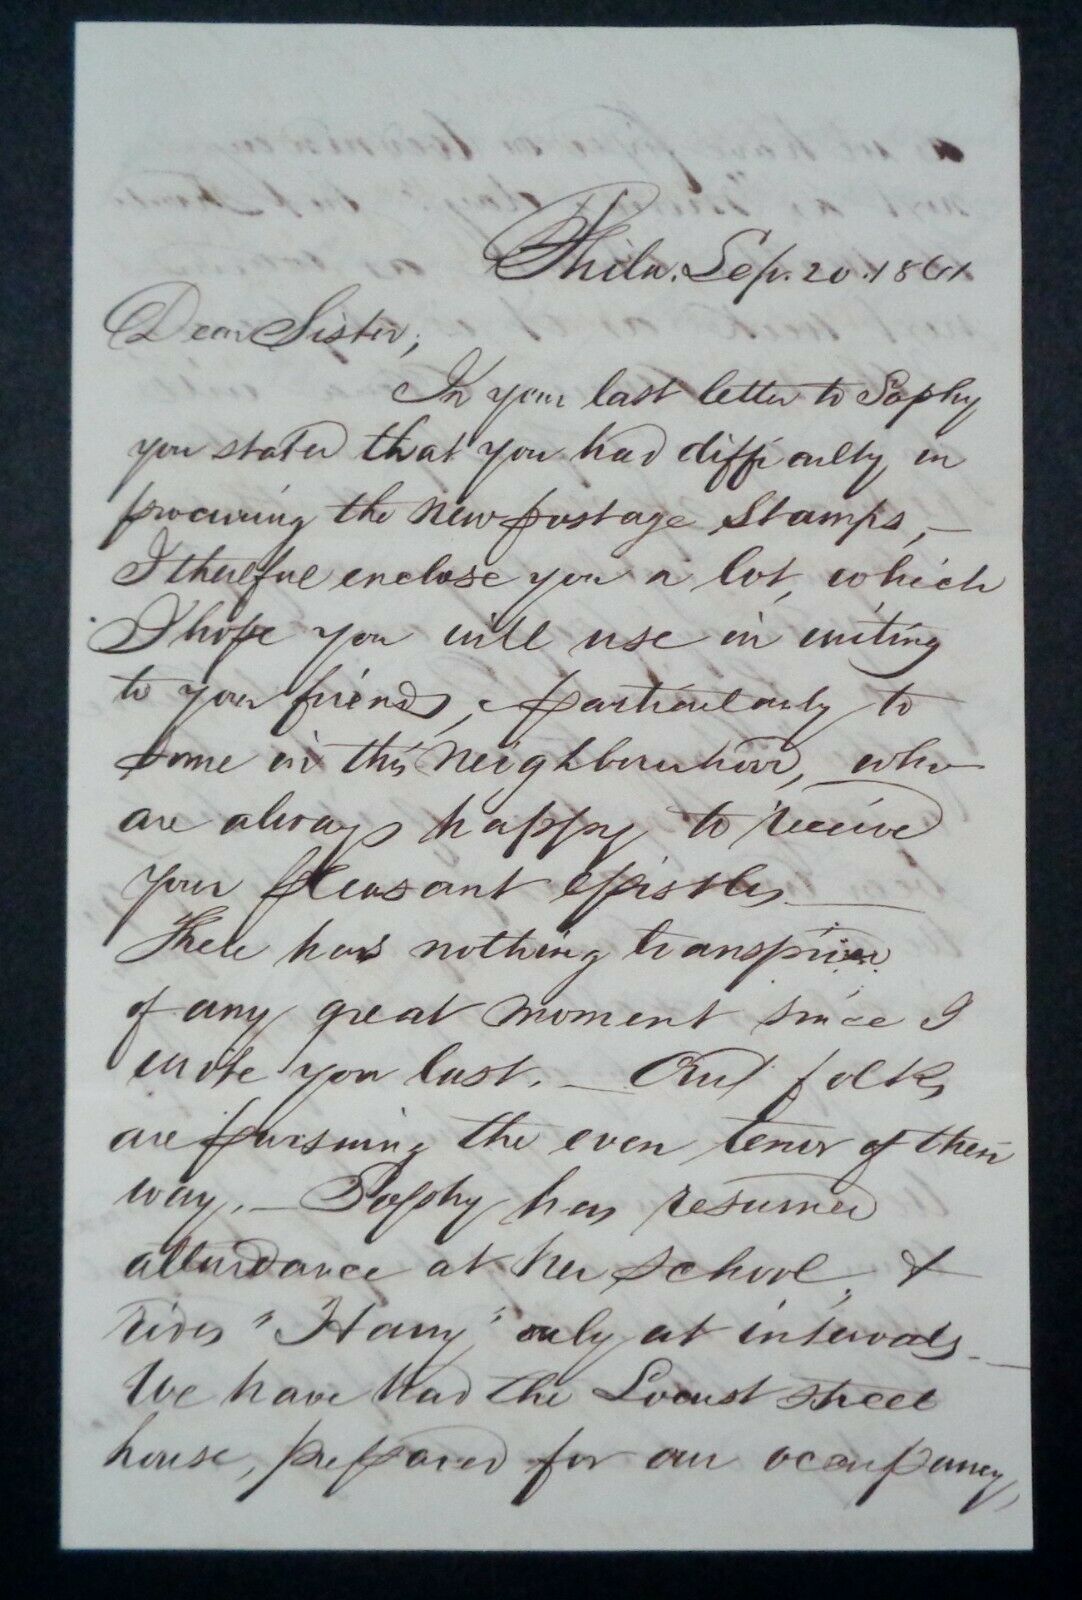 Phila. Sep. 20. 1861
Dear Sister,
In your last letter to Sophy
you stated that you had difficulty in
procuring the new postage Stamps, —
I therefore enclose you a lot, which
I hope you will use in writing
to your friends, particularly to
some in this neighbourhood, who
are always happy to receive
your pleasant epistles —
There has nothing transpired
of any great moment since I
wrote you last. — Our folks
are pursuing the even tenor of their
way. — Sophy has resumed
attendance at her school, &
rides "Harry" only at intervals —
We have had the Locust street
house, prepared for our occupancy,